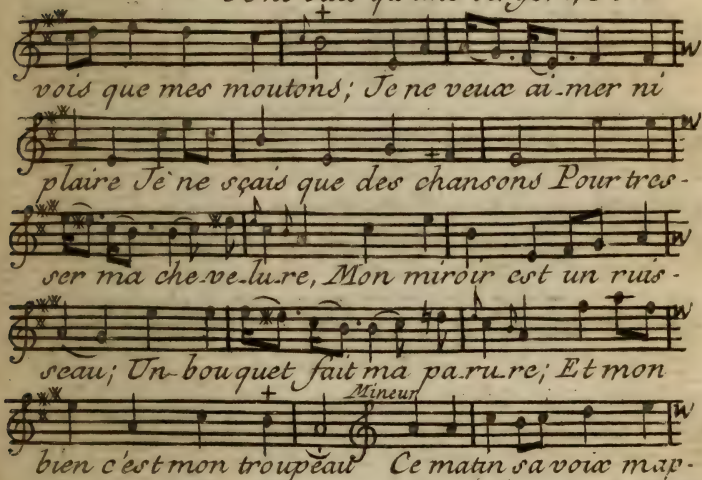 vois que mes moutons; Je ne veux ai-mer ni
plaire Je ne sçais que des chansons Pour tres-
ser ma che-ve-lu-re, Mon miroir est un ruis-
seau; Un bouquet fait ma pa-ru-re; Et mon
Mineur
bien c'est mon troupeau Ce matin sa voix map-